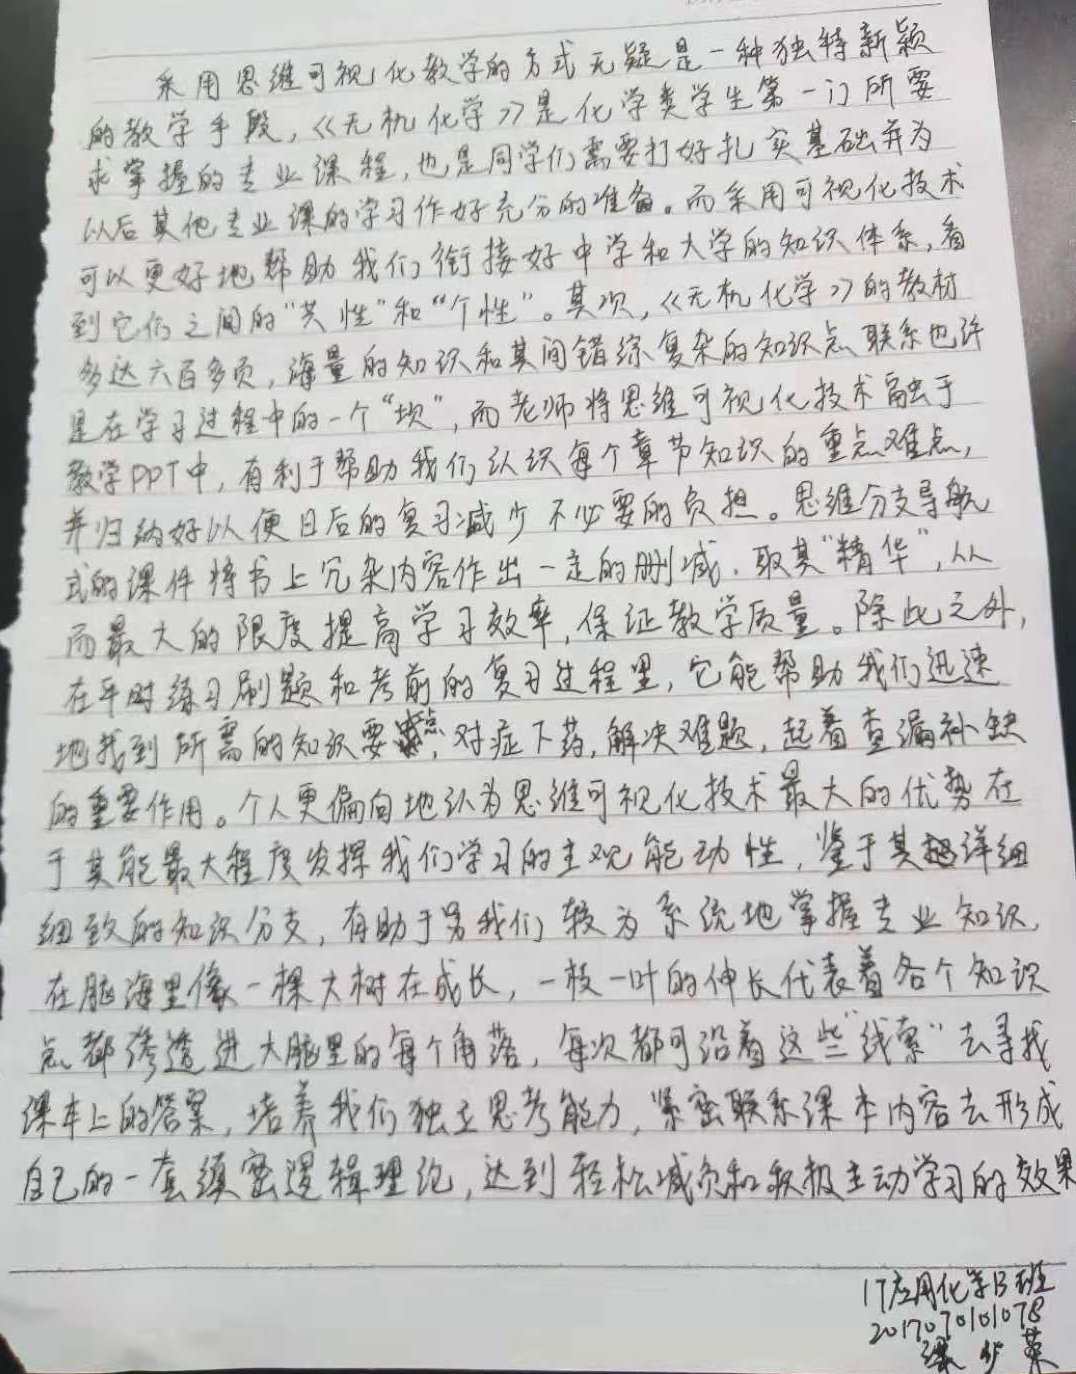 采用思维可视化教学的方式无疑是一种独特新颖
的教学手段，《无机化学》是化学类学生第一门所要
求掌握的专业课程，也是同学们需要打好扎实基础并为
以后其他专业课的学习作好充分的准备。而采用可视化技术
可以更好地帮助我们衔接好中学和大学的知识体系，看
到它们之间的“共性”和“个性”。其次，《无机化学》的教材
多达六百多页，海量的知识和其间错综复杂的知识点联系也许
是在学习过程中的一个“坎”，而老师将思维可视化技术融于
教学PPT中，有利于帮助我们认识每个章节知识的重点难点，
并归纳好以便日后的复习减少不必要的负担。思维分支导航
式的课件将书上冗杂内容作出一定的删减．取其“精华”，从
而最大的限度提高学习效率，保证教学质量。除此之外，
在平时练习刷题和考前的复习过程里，它能帮助我们迅速
地找到所需的知识要点，对症下药，解决难题，起着查漏补缺
的重要作用。个人更偏向地认为思维可视化技术最大的优势在
于其能最大程度发挥我们学习的主观能动性，鉴于其详细
细致的知识分支，有助于我们较为系统地掌握专业知识，
在脑海里像一棵大树在成长，一枝一叶的伸长代表着各个知识
点都渗透进大脑里的每个角落，每次都可沿着这些“线索”去寻找
课本上的答案，培养我们独立思考能力，紧密联系课本内容去形成
自己的一套缜密逻辑理论，达到轻松减负和积极主动学习的效果
17应用化学B班
2017070101078